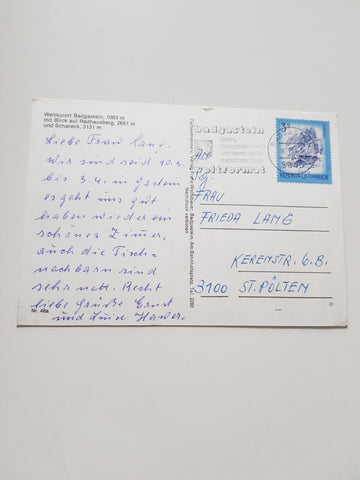 Weltkurort Badgastein, 1083 m
mit Blick auf Radhausberg, 2651 m
und Schareck, 3131 m
Liebe Frau Lang.
Wir sind seid 10.3.
bis 3.4. in Gastein
es geht uns gut
haben wieder ein
schönes Zimmer,
auch die Tisch-
nachbarn sind
sehr nett. Recht
liebe Grüße Ernst
und Luise
Nr. 48a
Farbaufnahme u. Verlag Franz Wolfsbauer, Badgastein, Am Bahnhofsplatz, Tel. 2280
Nachdruck verboten
badgastein
weltformat
3
REPUBLIK ÖSTERREICH
An
FRAU
FRIEDA LANG
KERENSTR. 6.B.
3100 ST. PÖLTEN